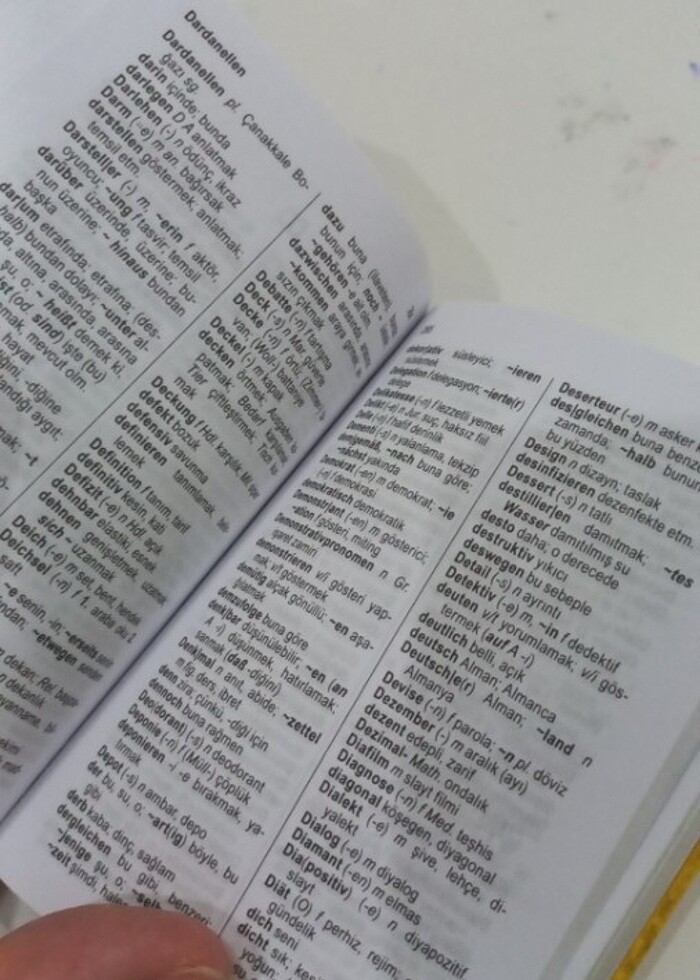 Dardanellen
Dardanellen pl. Çanakkale Bo-
ğazı sg.
darin içinde; bunda
darlegen D A anlatmak
Darlehen (-) n ödünç, ikraz
Darm (-e) m an. bağırsak
darstellen göstermek; anlatmak;
temsil etm.
Darsteller (-) m, ~erin f aktör,
oyuncu; ~ung f tasvir; temsil
darüber üzerinde, üzerine; bu-
nun üzerine; ~ hinaus bundan
başka
dar|um etrafında, etrafına; (des-
halb) bundan dolayı; ~unter al-
tında, altına, arasında, arasına
şu, o; ~ heißt demek ki,
ist (od sind) işte (bu)
mevcut olm.
hayat
dazu buna (ilaveten)
bunun için; noch ~
~gehören -e ait olm.
dazwischen arasında
~kommen araya girmek
Debatte (-n) f tartışma
Deck (-s) n Mar güverte
Decke (-n) f örtü; (Zimmer)
van; (Woll-) battaniye
Deckel (-) m kapak
decken örtmek;
patmak; Bedarf
Tier çiftleştirmek; Tisch
mak
Deckung f Hdl. karşılık; Mil.
defekt bozuk
defensiv savunma
definieren tanımlamak,
lemek
Definition f tanım, tarif
definitiv kesin, kati
Defizit (-e) n Hdl. açık
dehnbar elastik, esnek
dehnen genişletmek, uzatmak
sich ~ uzanmak
Deich (-e) m set, bent,
Deichsel (-n) f 1. araba oku 2.
dekorativ süsleyici; ~ieren
süslemek
Delegation f delegasyon; ~ierte(r)
delege
Delikatesse (-n) f lezzetli yemek
Delikt (-e) n Jur. suç, haksız fiil
Delle (-n) f hafif derinlik
Dementi (-s) n yalanlama, tekzip
demgemäß, ~nach buna göre;
~nächst yakında
Demokrat (-en) m demokrat; ~ie
(-n) f demokrasi
demokratisch demokratik
Demonstrant (-en) m gösterici;
~ation f gösteri, miting
demonstrativpronomen n Gr.
işaret zamiri
demonstrieren v/i gösteri yap-
mak, v/t göstermek
demütig alçak gönüllü; ~en aşa-
ğılatmak
demzufolge buna göre
denk|bar düşünülebilir; ~en (an
A -i) düşünmek, hatırlamak;
sanmak (daß -diğini)
Denkmal n anıt, abide; ~zettel
m fig. ders, ibret
denn zira; çünkü, -diği için
dennoch buna rağmen
Deo(dorant) (-s) n deodorant
Deponie (-n) f (Müll-) çöplük
deponieren -i -e bırakmak, ya-
tırmak
Depot (-s) n ambar, depo
der bu, şu, o; ~art(ig) böyle, bu
gibi
derb kaba; dinç, sağlam
dergleichen bu gibi, benzeri;
~jenige şu, o; ~selbe
~zeit şimdi, halen
Deserteur (-e) m asker
des|gleichen buna benzer
zamanda; ~halb bunun
bu yüzden
Design n dizayn; taslak
desinfizieren dezenfekte etm.
Dessert (-s) n tatlı
destillier|en damıtmak; ~tes
Wasser damıtılmış su
desto daha, o derecede
destruktiv yıkıcı
deswegen bu sebeple
Detail (-s) n ayrıntı
Detektiv (-e) m, ~in f dedektif
deuten v/t yorumlamak; v/i gös-
termek (auf A -i)
deutlich belli, açık
deutsch Alman; Almanca
Deutsch|e(r) Alman; ~land n
Almanya
Devise (-n) f parola; ~n pl. döviz
Dezember (-) m aralık (ayı)
dezent edepli, zarif
Dezimal- Math. ondalık
Diafilm m slayt filmi
Diagnose (-n) f Med. teşhis
diagonal köşegen, diyagonal
Dialekt (-e) m şive, lehçe, di-
yalekt
Dialog (-e) m diyalog
Diamant (-en) m elmas
Dia(positiv) (-e) n diyapozitif
slayt
Diät (O) f perhiz, rejim;
gündelik
dich seni
dicht sık;
yoğun;